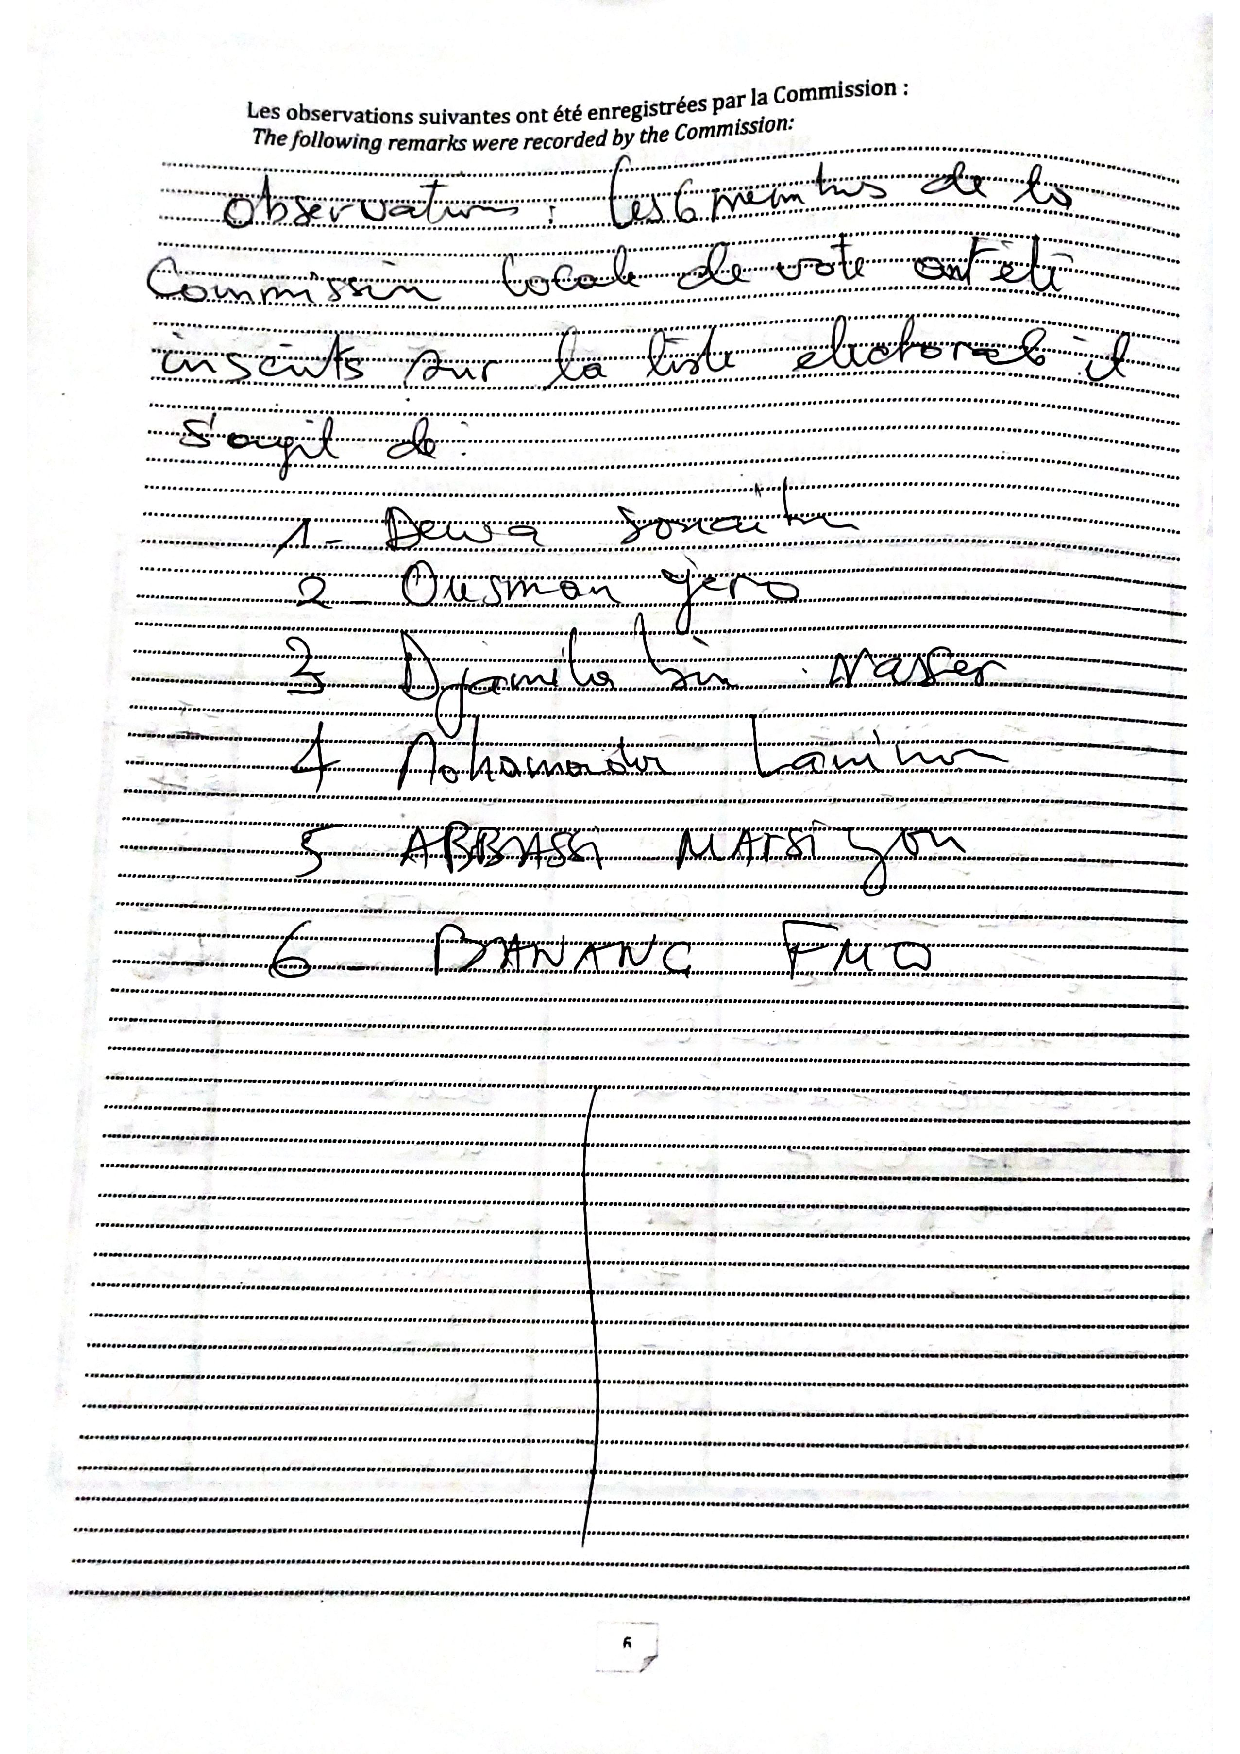 Les observations suivantes ont été enregistrées par la Commission :
The following remarks were recorded by the Commission:
Observations : Les 6 membres de la
Commission locale de vote ont été
inscrits sur la liste électorale il
s'agit de :
1- Dewa
2 - Ousman yero
3 Djamila bin Nasser
4 Lamina
5 ABBASSI MATSiyou
6 - BANANG
6